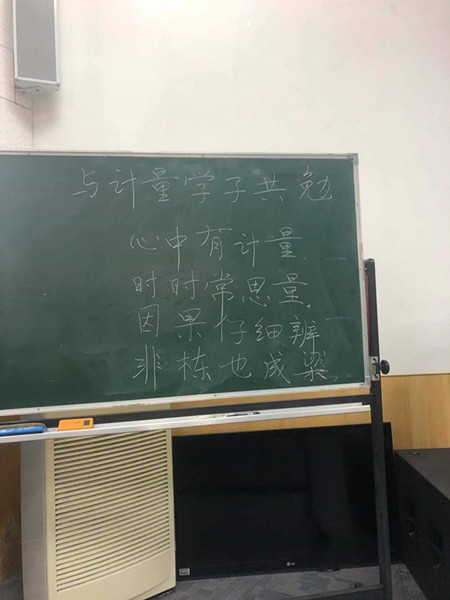 与计量学子共勉
心中有计量，
时时常思量。
因果仔细辨
非栋也成梁
LG